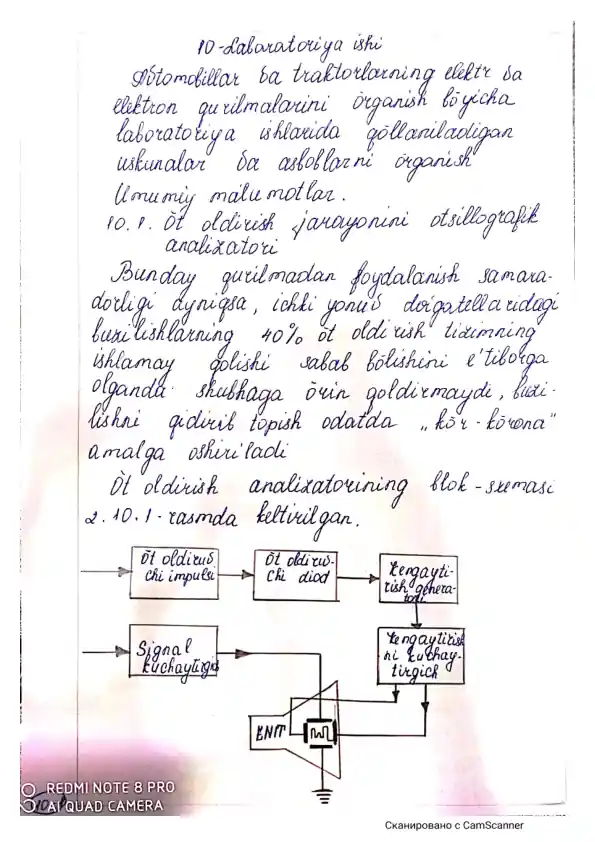 10-Laboratoriya ishi
Avtomobillar va traktorlarning elektr va
elektron qurilmalarini ōrganish bōyicha
laboratoriya ishlarida qōllaniladigan
uskunalar va asboblarni ōrganish
Umumiy ma'lumotlar.
10.1. Ōt oldirish jarayonini otsillografik
analizatori
Bunday qurilmadan foydalanish samara-
dorligi ayniqsa, ichki yonuv dvigatellaridagi
buzilishlarning 40% ōt oldirish tizimning
ishlamay qolishi sabab bōlishini e'tiborga
olganda shubhaga ōrin qoldirmaydi, buzi-
lishni qidirib topish odatda „kōr-kōrona"
amalga oshiriladi
Ōt oldirish analizatorining blok-sxemasi
2.10.1-rasmda keltirilgan.
Ōt oldiruv
chi impulsi
Ōt oldiruv-
chi diod
Kengayti-
rish genera-
tori
Signal
kuchaytirgich
Kengaytirish
ni kuchay-
tirgich
ENIT
REDMI NOTE 8 PRO
AI QUAD CAMERA
Сканировано с CamScanner